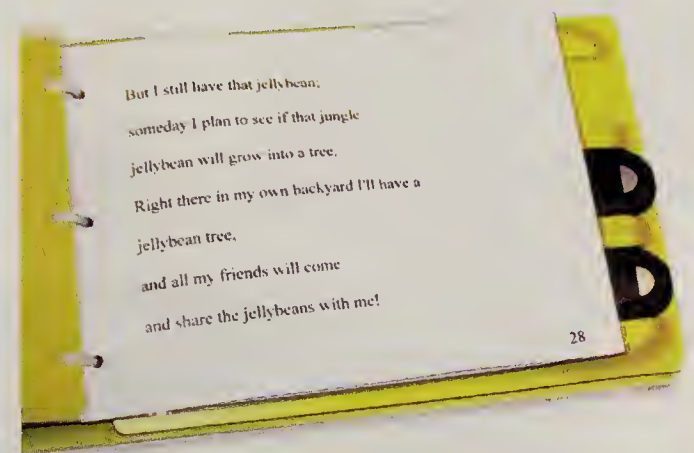 But I still have that jellybean;
someday I plan to see if that jungle
jellybean will grow into a tree.
Right there in my own backyard I'll have a
jellybean tree,
and all my friends will come
and share the jellybeans with me!
28